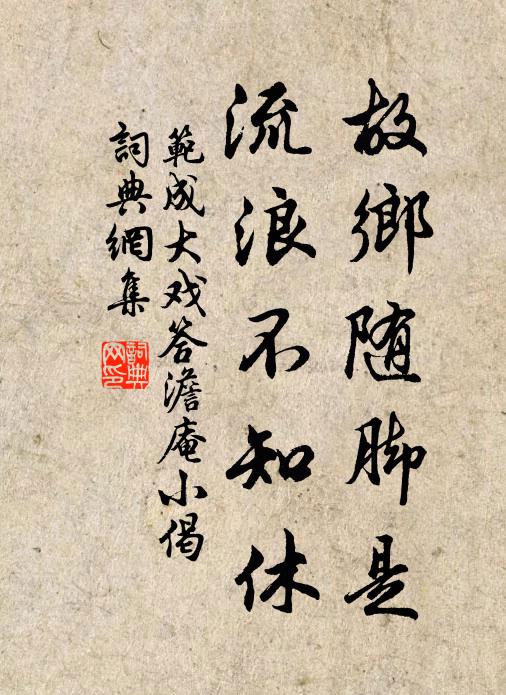 故鄉随脚是
流浪不知休
範成大戏答澹庵小偈
詞典網集
詞典
网印